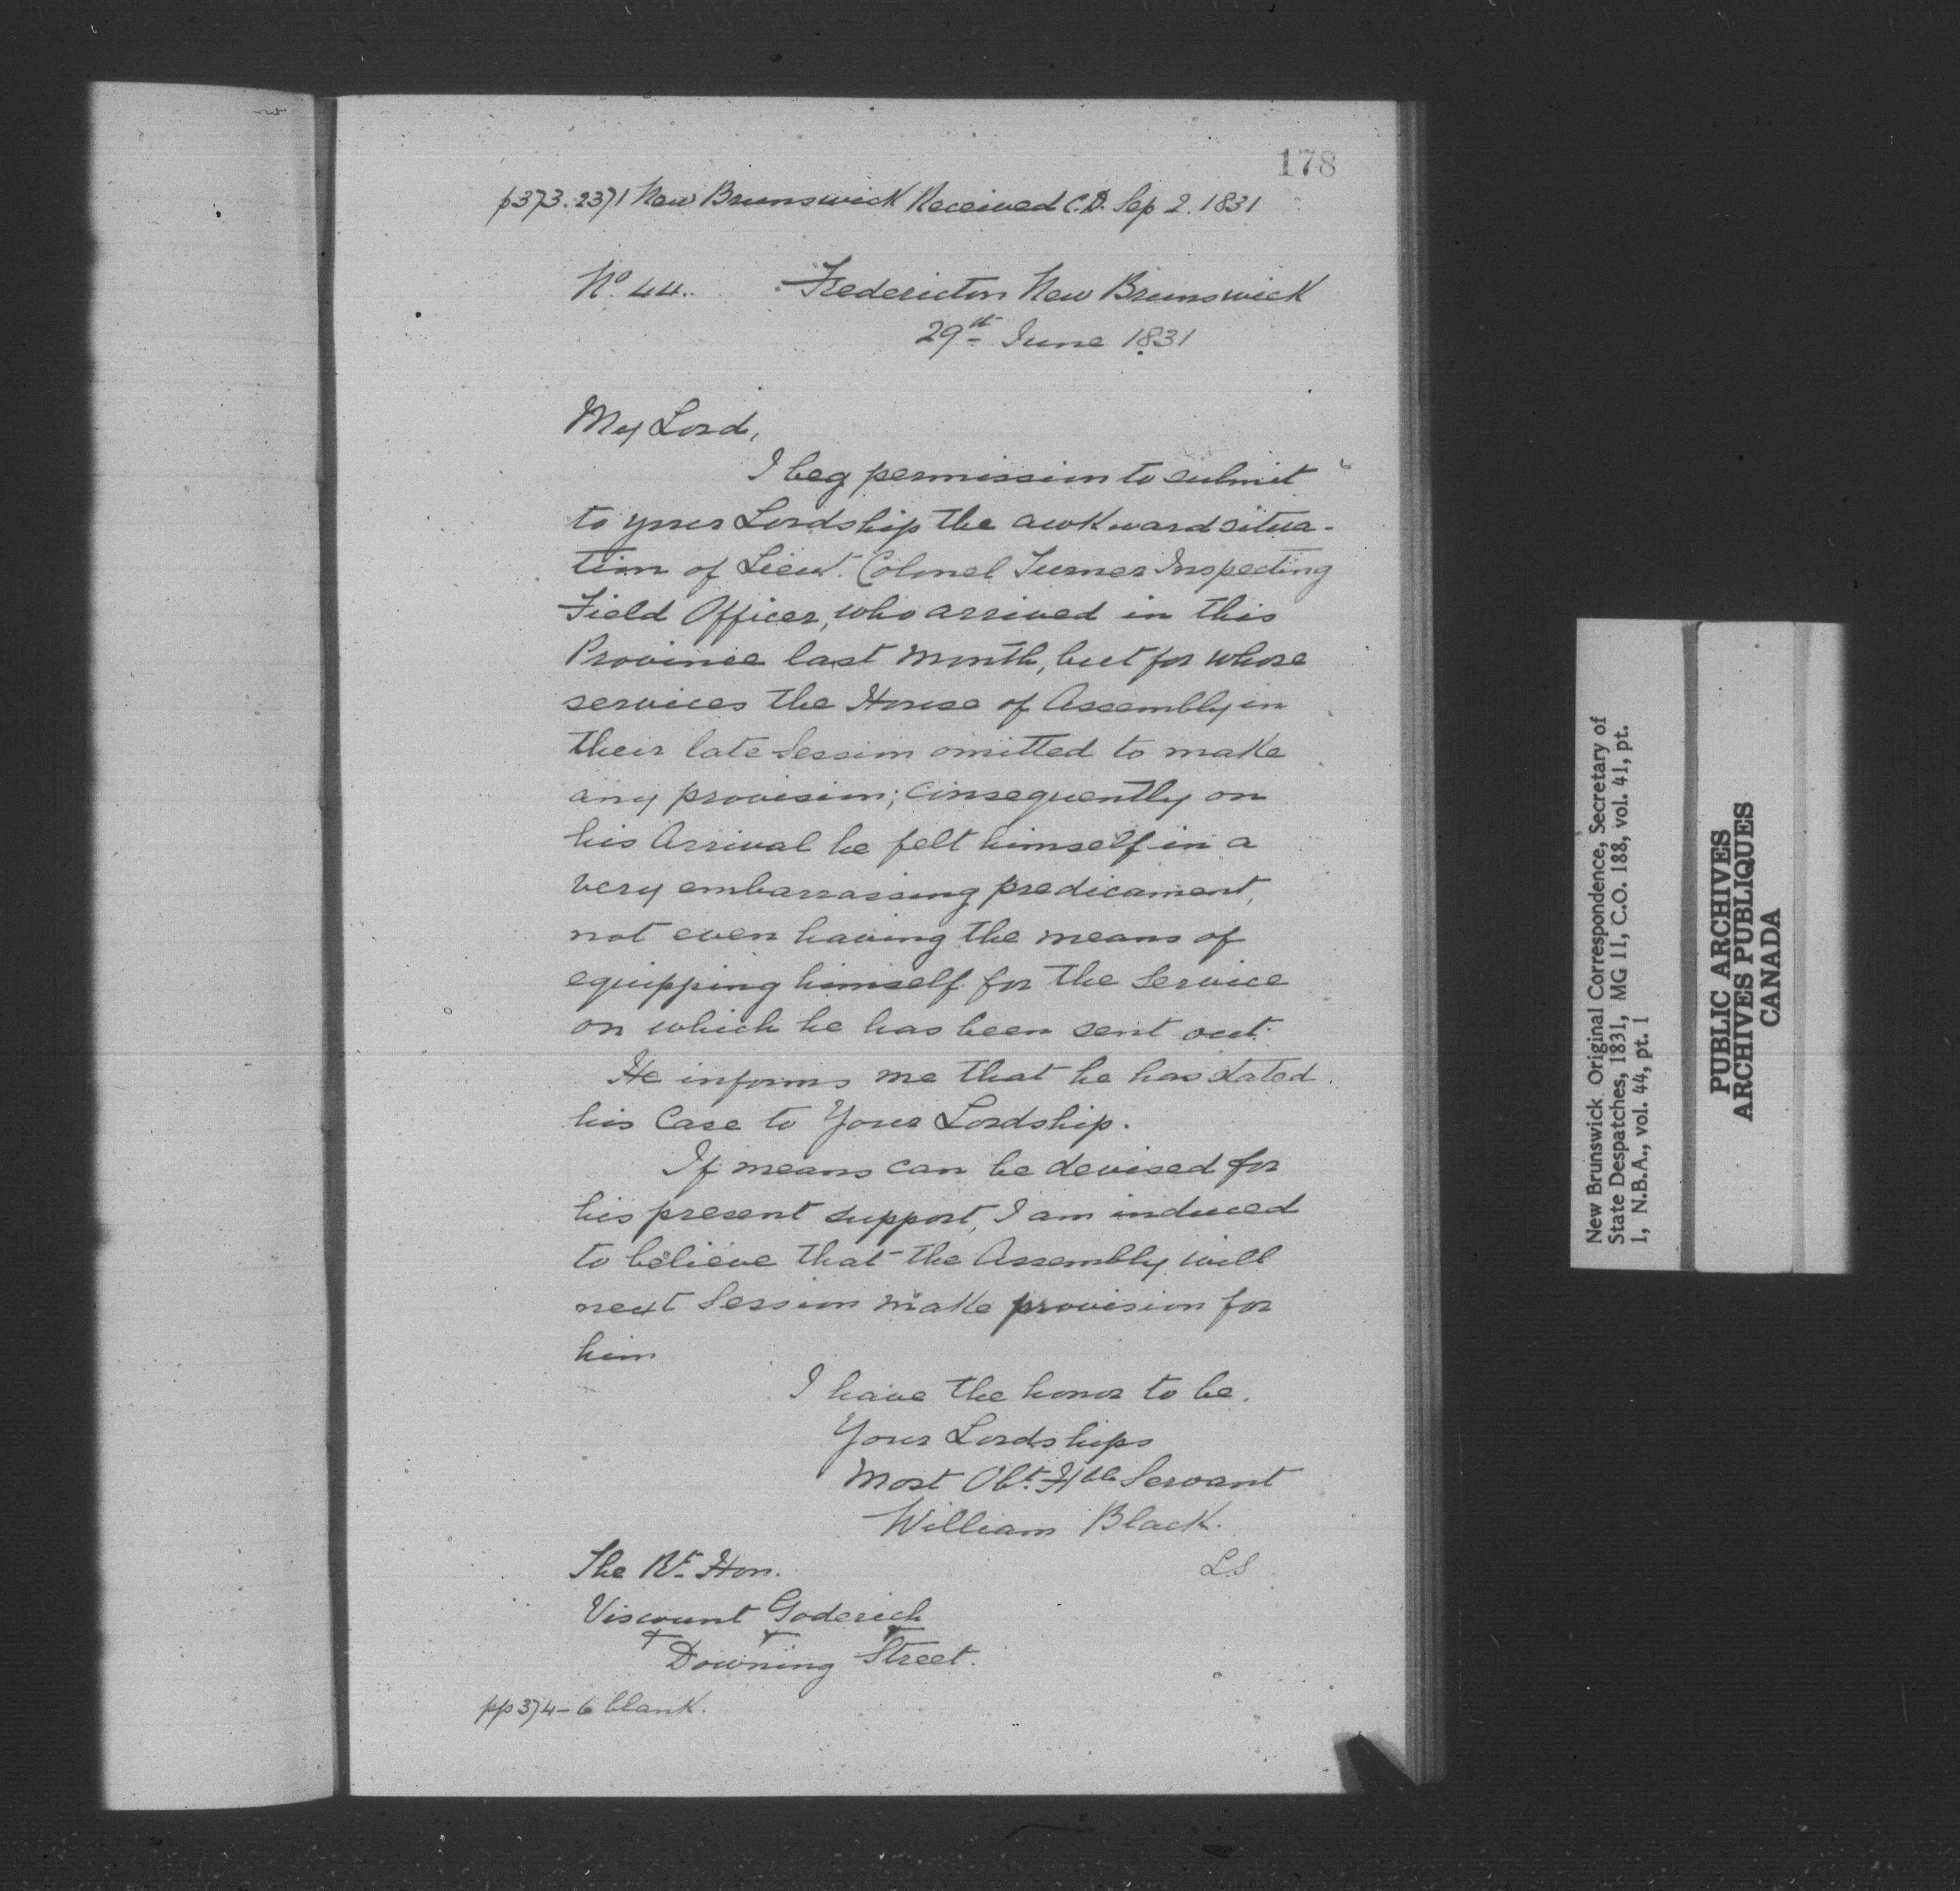 178
p373. 2371 New Brunswick Received C.D. Sep 2. 1831
No. 44. Fredericton New Brunswick
29th June 1831
My Lord,
I beg permission to submit
to your Lordship the awkward situa-
tion of Lieut. Colonel Turner Inspecting
Field Officer, who arrived in this
Province last month, but for whose
services the House of Assembly in
their late Session omitted to make
any provision; consequently on
his Arrival he felt himself in a
very embarrassing predicament,
not even having the means of
equipping himself for the Service
on which he has been sent out.
He informs me that he has stated
his Case to Your Lordship.
If means can be devised for
his present support, I am induced
to believe that the Assembly will
next Session make provision for
him
I have the honor to be.
Your Lordships
Most Obt. Hble Servant
William Black.
LS
The Rt. Hon.
Viscount Goderich
Downing Street.
pp 374-6 blank.
New Brunswick Original Correspondence, Secretary of
State Despatches, 1831, MG 11, C.O. 188, vol. 41, pt.
1, N.B.A., vol. 44, pt. 1
PUBLIC ARCHIVES
ARCHIVES PUBLIQUES
CANADA